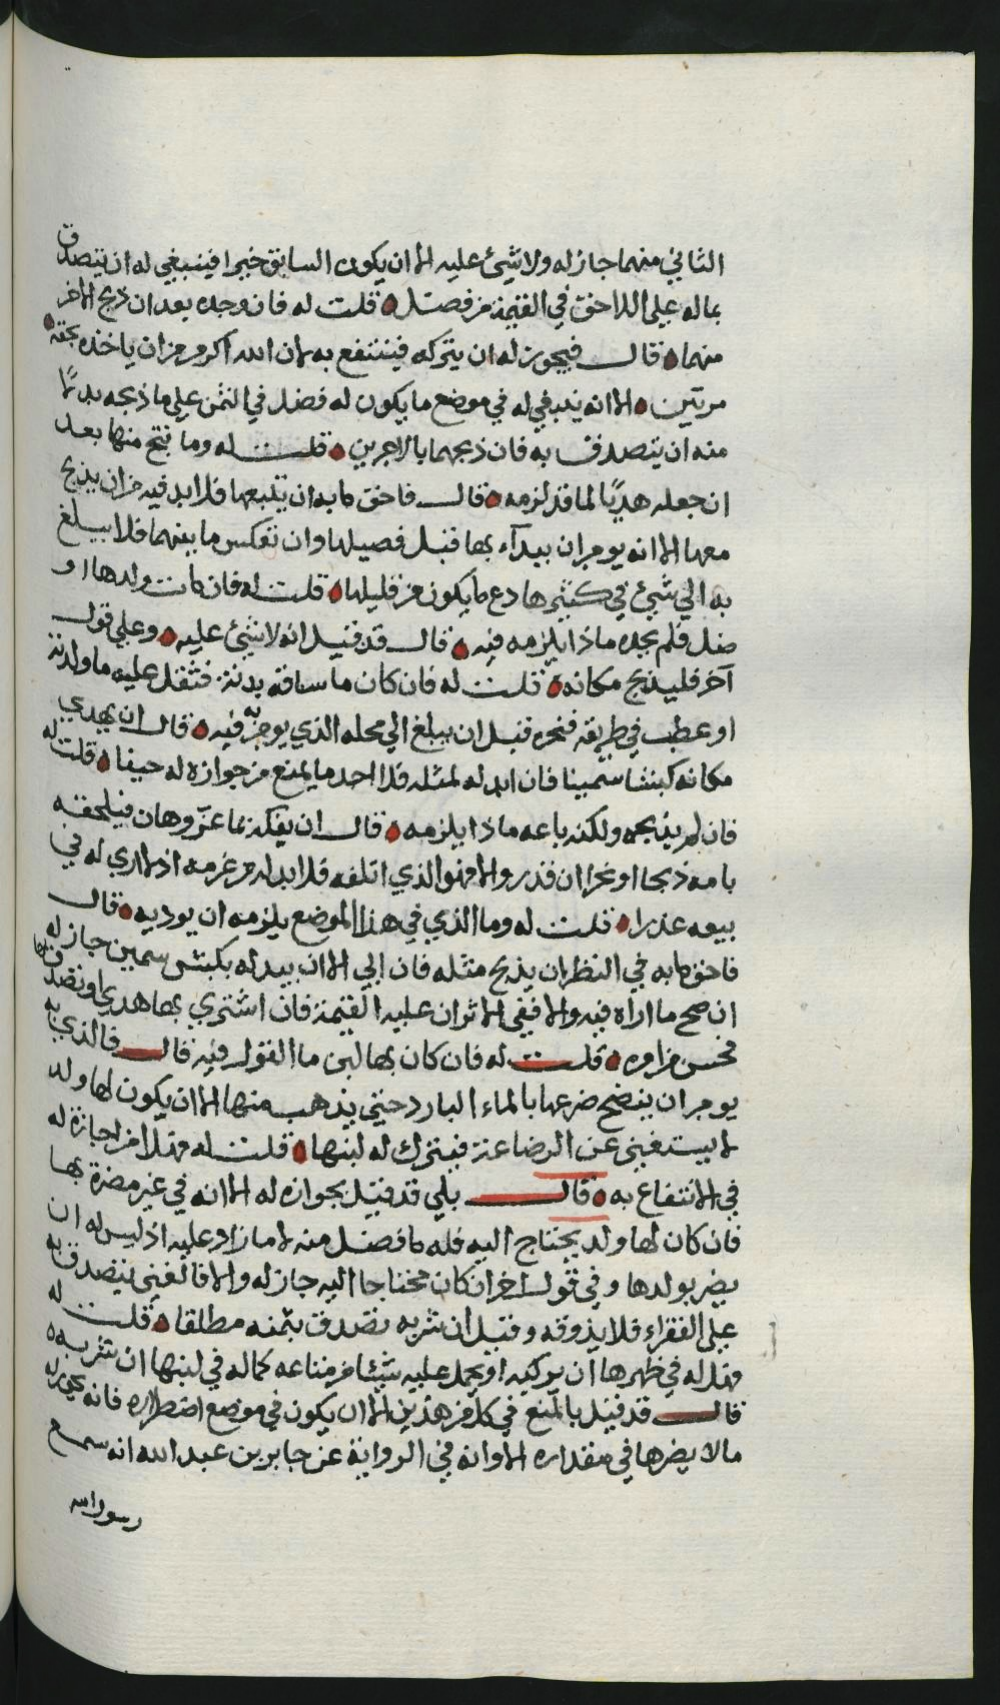 الثاني منهما جاز له ولا شيئ عليه الا ان يكون السابق خيرا فينبغي له ان يتصدق
بماله على اللاحق في القيمة من فضل قلت له فان وجده بعد ان ذبح الاخر
منهما قال فيجوز له ان يتركه فينتفع به لان الله اكرم من ان ياخذه بحقه
مرتين الا انه ينبغي له في موضع ما يكون له فضل في الثمن على ما ذبحه بدلا
منه ان يتصدق به فان ذبحهما بالاجرين قلت له وما نتج منها بعد
ان جعله هديا لما قد لزمه قال فاحق ما به ان يتبعها فلا بد فيه من ان يذبح
معها الا انه يومر ان يبدآء بها قبل فصيلها وان تعكس ما بينهما فلا يبلغ
به الى شيئ في كثيرها دع ما يكون من قليلها قلت له فان مات ولدها او
ضل فلم يجده ماذا يلزمه فيه قال قد قيل انه لا شيئ عليه وعلى قول
آخر فليذبح مكانه قلت له فان كان ما ساقه بدنة فثقل عليه ما ولدته
او عطب في طريقه فنحره قبل ان يبلغ الى محله الذي يومر به فيه قال ان يهدي
مكانه كبشا سمينا فان ابدله لمثله فلا احد ما يمنع من جوازه له حيفا قلت له
فان لم يذبحه ولكنه باعه ماذا يلزمه قال ان يفكه بما عز وهان فيلحقه
بامه ذبحا او نحرا ان قدر والا فهو الذي اتلفه فلا بد له من غرمه اذ لا ارى له في
بيعه عذرا قلت له وما الذي في هذا الموضع يلزمه ان يوديه قال
فاحق ما به في النظر ان يذبح مثله فان ابى الا ان يبدله بكبش سمين جاز له
ان صح ما اراه فيه والا ففي الاثر ان عليه القيمة فان اشترى بها هدي او تصدق بها
فحسن من امره قلت له فان كان بها لبن ما القول فيه قال فالذي به
يومر ان ينضح ضرعها بالماء البارد حتى يذهب منها الا ان يكون لها ولد
لا يستغنى عن الرضاعة فيترك له لبنها قلت له فهلا من اجازة له
في الانتفاع به قال بلى قد قيل بجوازه له الا انه في غير مضرة بها
فان كان لها ولد يحتاج اليه فله ما فضل منه لا ما زاد عليه اذ ليس له ان
يضر بولدها وفي قول اخر ان كان محتاجا اليه جاز له والا فالغنى يتصدق به
على الفقراء فلا يذوقه وقيل ان شربه تصدق بثمنه مطلقا قلت له
فهل له في ظهرها ان يركبه او يحمل عليه شيئا من متاعه كما له في لبنها ان تشربه
قال قد قيل بالمنع في كل من هذين الا ان يكون في موضع اضطراره فانه يجوز له
ما لا يضرها في مقداره الا وانه في الرواية عن جابر بن عبد الله انه سمع
رسول الله